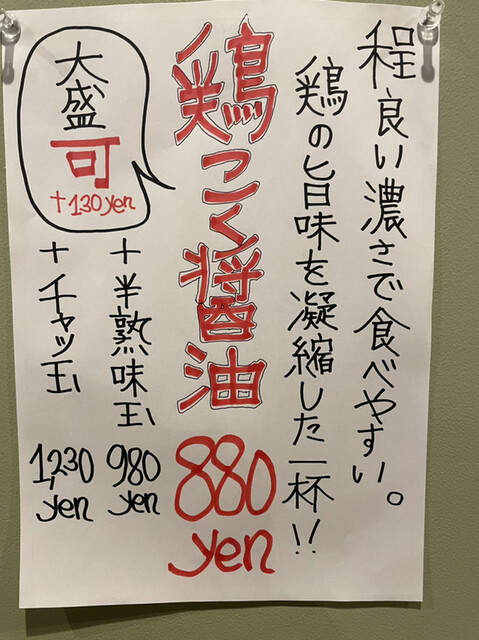 程良い濃さで食べやすい。
鶏の旨味を凝縮した一杯!!
鶏こく醤油
880
yen
大盛
可
+130yen
+半熟味玉
980
yen
+チャッ玉
1,230
yen